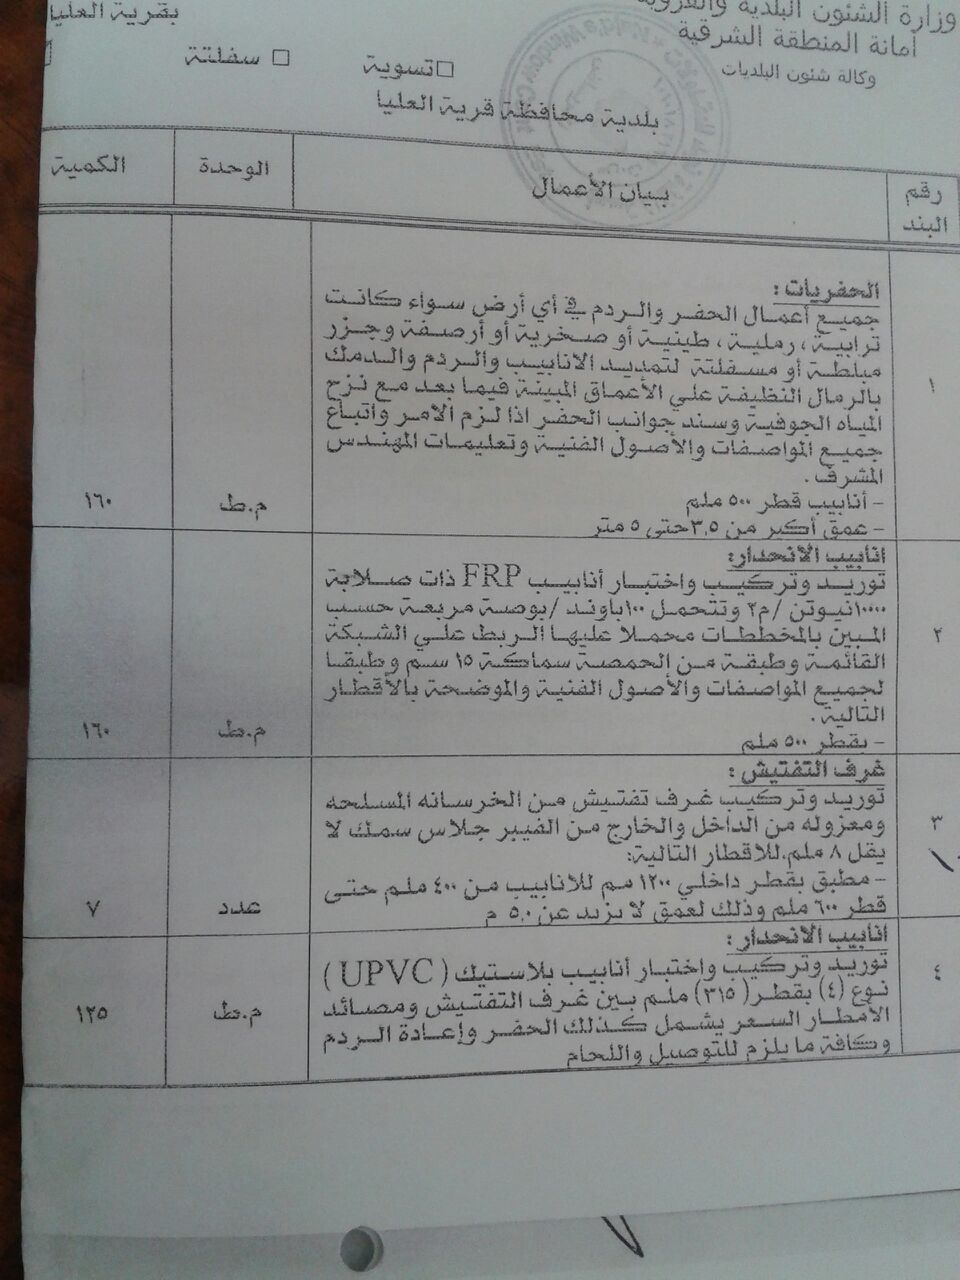 وزارة الشئون البلدية والقروية
أمانة المنطقة الشرقية
وكالة شئون البلديات
بقرية العليا
□ تسوية □ سفلتة
بلدية محافظة قرية العليا
رقم البند بيان الأعمال الوحدة الكمية
١
الحفريات :
جميع أعمال الحفر والردم في أي أرض سواء كانت
ترابية ، رملية ، طينية أو صخرية أو أرصفة وجزر
مبلطة أو مسفلتة لتمديد الانابيب والردم والدمك
بالرمال النظيفة علي الأعماق المبينة فيما بعد مع نزح
المياه الجوفية وسند جوانب الحفر اذا لزم الامر واتباع
جميع المواصفات والأصول الفنية وتعليمات المهندس
المشرف .
- أنابيب قطر ٥٠٠ ملم م.ط ١٦٠
- عمق أكبر من ٣,٥ حتى ٥ متر
٢
انابيب الانحدار:
توريد وتركيب واختبار أنابيب FRP ذات صلابة
١٠٠٠٠نيوتن /م٢ وتتحمل ١٠٠باوند /بوصة مربعة حسب
المبين بالمخططات محملا عليها الربط علي الشبكة
القائمة وطبقة من الحمصة سماكة ١٥ سم وطبقا
لجميع المواصفات والأصول الفنية والموضحة بالأقطار
التالية . م.ط ١٦٠
- بقطر ٥٠٠ ملم
٣
غرف التفتيش :
توريد وتركيب غرف تفتيش من الخرسانه المسلحه
ومعزوله من الداخل والخارج من الفيبر جلاس سمك لا
يقل ٨ ملم.للاقطار التالية:
- مطبق بقطر داخلي ١٢٠٠ مم للانابيب من ٤٠٠ ملم حتى
قطر ٦٠٠ ملم وذلك لعمق لا يزيد عن ٥,٠ م عدد ٧
٤
انابيب الانحدار:
توريد وتركيب واختبار أنابيب بلاستيك ( UPVC )
نوع (٤) بقطر( ٣١٥) ملم بين غرف التفتيش ومصائد
الأمطار السعر يشمل كذلك الحفر وإعادة الردم م.ط ١٢٥
وكافة ما يلزم للتوصيل واللحام